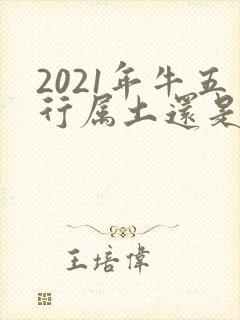 2021年牛五
行属土還是
王培偉